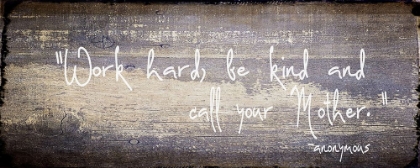 "Work hard, be kind and
call your Mother."
~anonymous